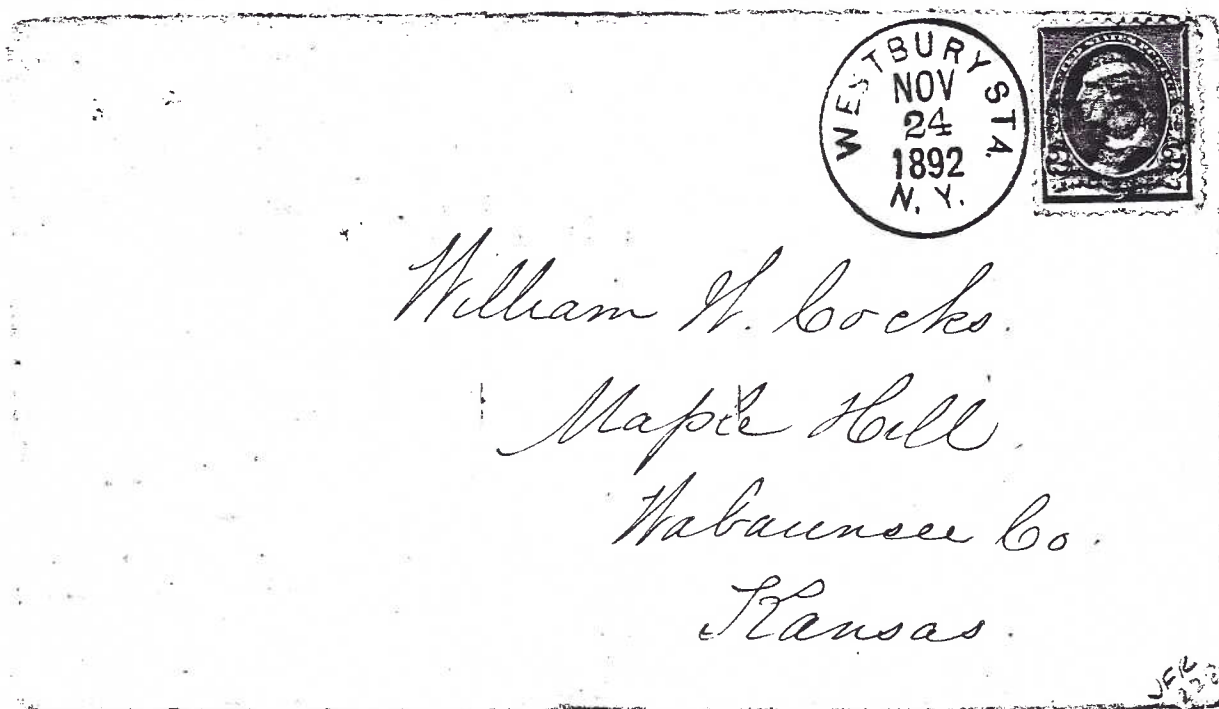 WESTBURY STA.
NOV
24
1892
N. Y.
William W. Cocks.
Maple Hill.
Wabaunsee Co.
Kansas.